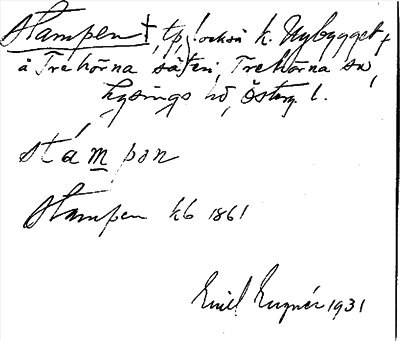 Stampen †, tp, också k. Nybygget †
å Trehörna säteri, Trehörna sn,
Lysings hd, Östg. l.
stámpən
Stampen kb 1861
Emil 1931